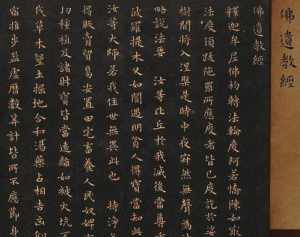 佛遺教經
佛遺教經
釋迦牟尼佛初轉法輪度阿若憍陳如最
法度須跋陀羅所應度者皆已度訖於娑
樹間將入涅槃是時中夜寂然無聲為諸
略說法要 汝等比丘於我滅後當尊重
波羅提木叉如闇遇明貧人得寶當知此
汝等大師若我住世無異此也 持淨
得販賣貿易安置田宅畜養人民奴婢
切種植及諸財寶皆當遠離如避火坑不
伐草木墾土掘地合和湯藥占相吉凶仰
宿推步盈虛曆數算計皆所不應節身